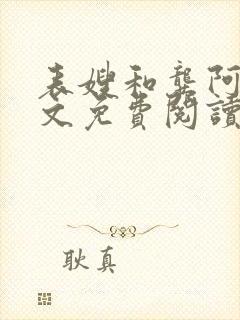 表嫂和龔阿
文免費閱讀
耿真